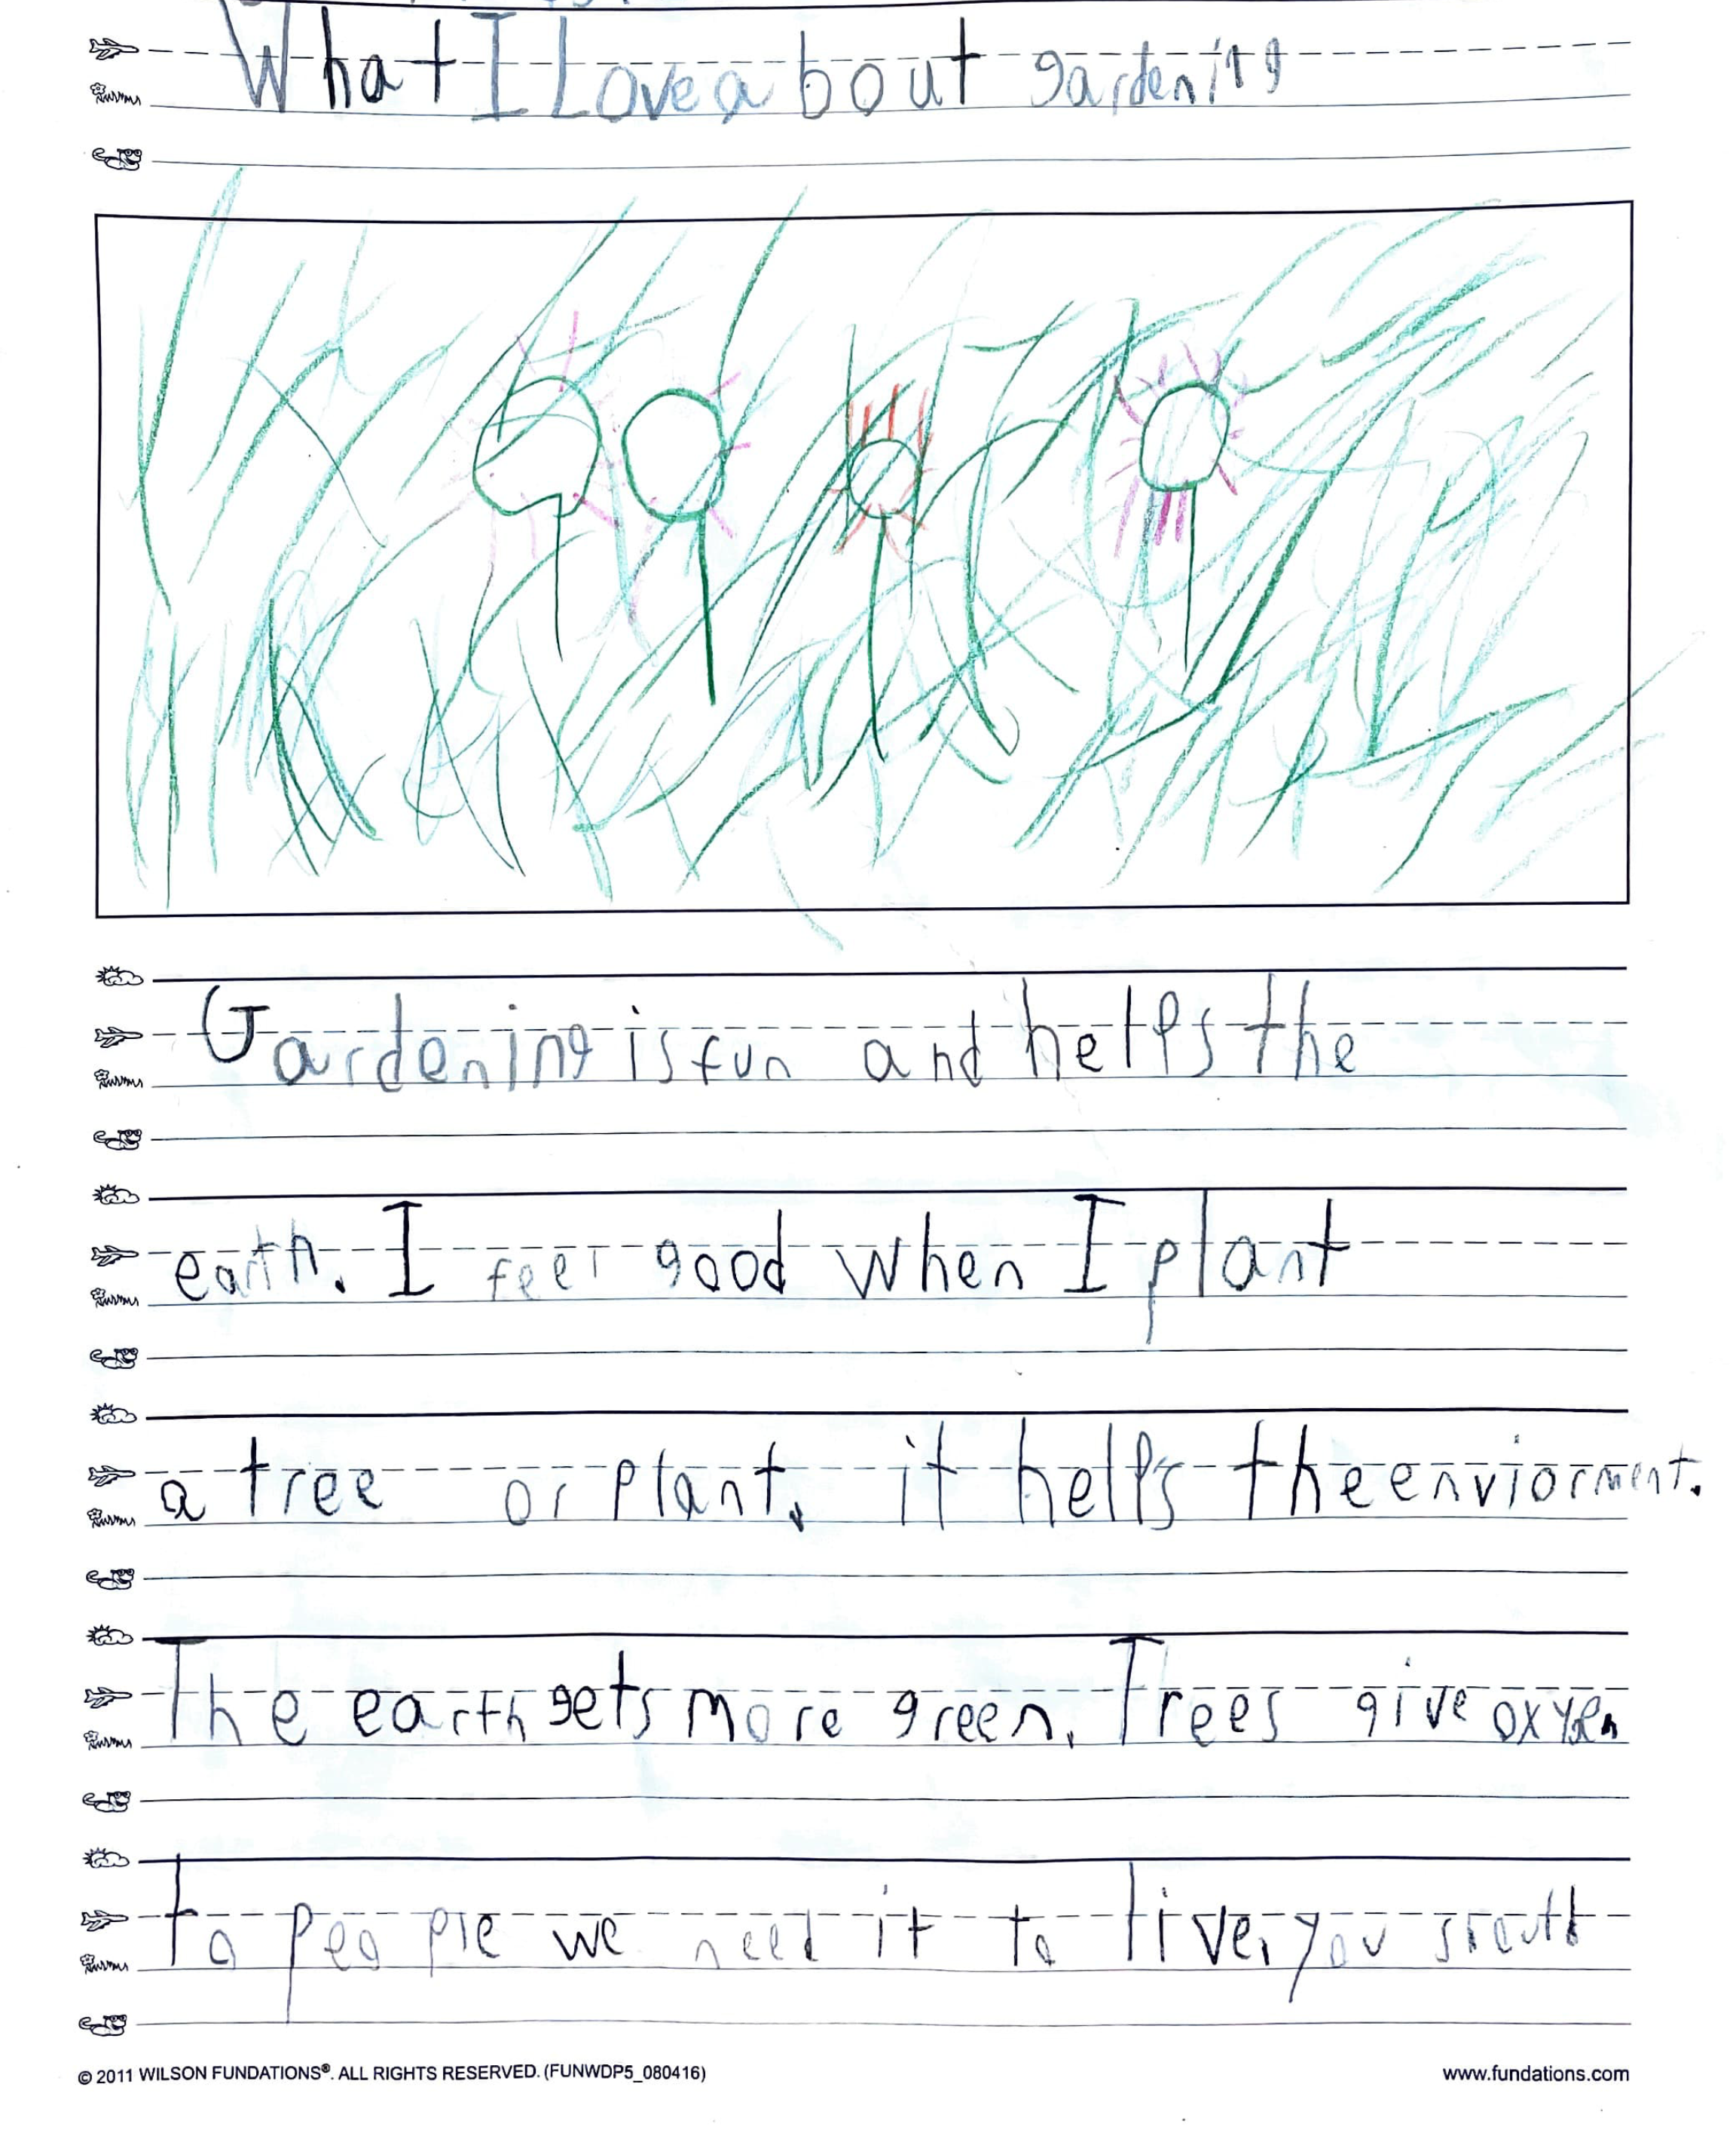 What I Love about gardening
Gardening is fun and helps the
earth. I feel good when I plant
a tree or plant. it helps the enviorment.
The earth gets more green. Trees give oxygen
to people we need it to live, you
© 2011 WILSON FUNDATIONS®. ALL RIGHTS RESERVED. (FUNWDP5_080416)
www.fundations.com